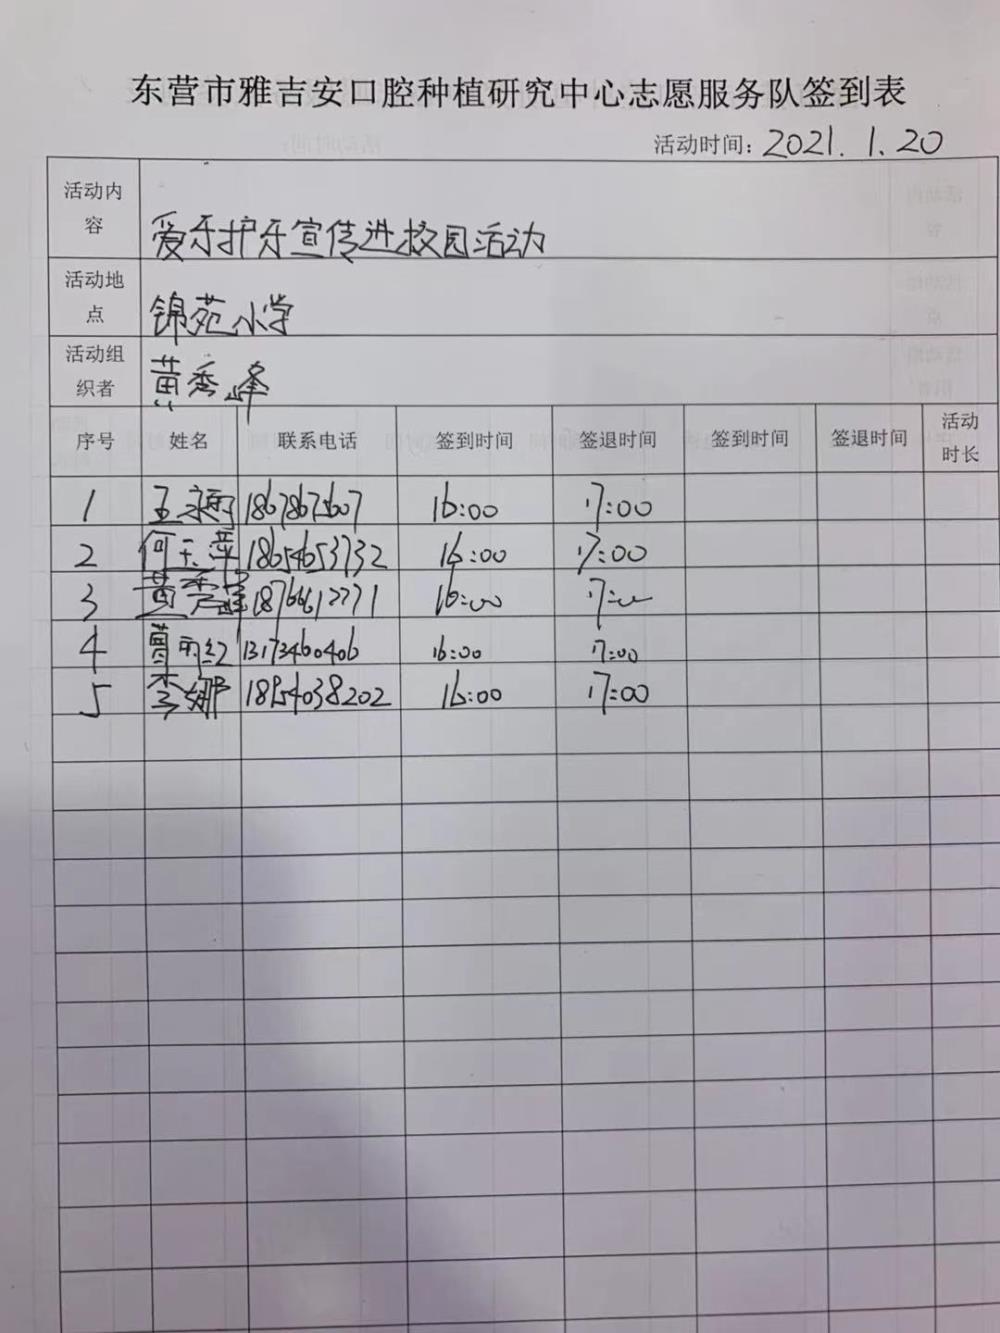 东营市雅吉安口腔种植研究中心志愿服务队签到表
活动时间：2021.1.20
活动内容 爱牙护牙宣传进校园活动
活动地点 锦苑小学
活动组织者 黄秀峰
序号 姓名 联系电话 签到时间 签退时间 签到时间 签退时间 活动时长
1 王 18678675607 16:00 17:00
2 何 18654653732 16:00 17:00
3 黄秀峰 18766612771 16:00 17:00
4 13173460406 16:00 17:00
5 李娜 18954038202 16:00 17:00